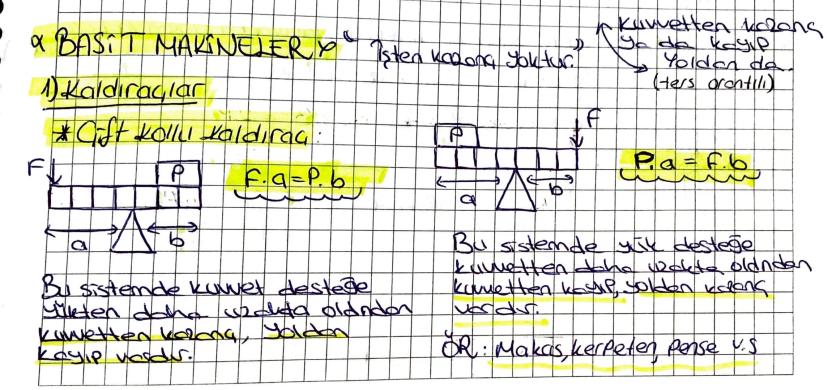 α BASİT MAKİNELER γ "İşten kazanç yoktur."
Kuvvetten kazanç
ya da kayıp
Yoldan da
(ters orantılı)
1) Kaldıraçlar
* Çift kollu kaldıraç:
F
P
F.a=P.b
a
b
Bu sistemde kuvvet desteğe
yükten daha uzakta oldndan
kuvvetten kazanç, yoldan
kayıp vardır.
F
P
P.a = F.b
a
b
Bu sistemde yük desteğe
kuvvetten daha uzakta oldndan
kuvvetten kayıp, yoldan kazanç
vardır.
ÖR: Makas, kerpeten, pense v.s